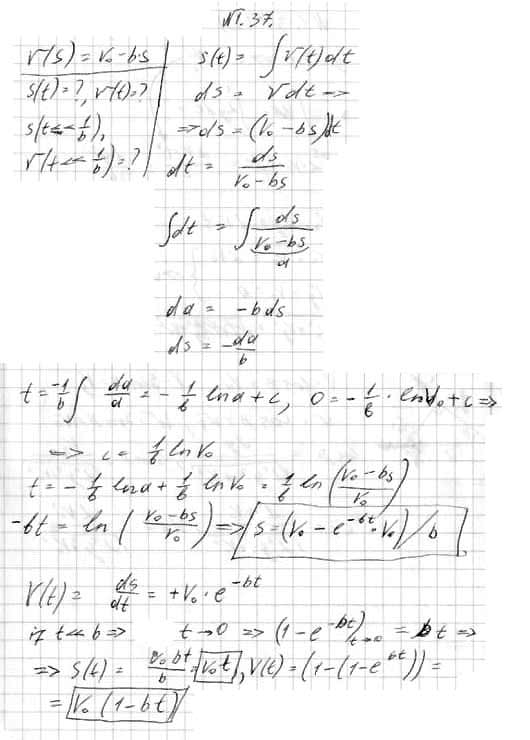 N1.37.
v(s) = v₀-b·s
s(t)=?, v(t)=?
s(t<<1/b),
v(t<<1/b)=?
s(t) = ∫v(t)dt
ds = vdt =>
=> ds = (v₀-bs)dt
dt = ds/(v₀-bs)
∫dt = ∫ds/(v₀-bs)
a
da = -bds
ds = -da/b
t = -1/b ∫ da/a = -1/b ln a + c, 0 = -1/b · ln v₀ + c =>
=> c = 1/b ln v₀
t = -1/b ln a + 1/b ln v₀ = 1/b ln((v₀-bs)/v₀)
-bt = ln((v₀-bs)/v₀) => s = (v₀ - e^(-bt)·v₀)/b
V(t) = ds/dt = +v₀·e^(-bt)
if t<<b => t→0 => (1-e^(-bt))_(t→0) = bt =>
=> s(t) = v₀bt/b = v₀t, V(t) = (1-(1-e^(bt))) =
= v₀(1-bt)